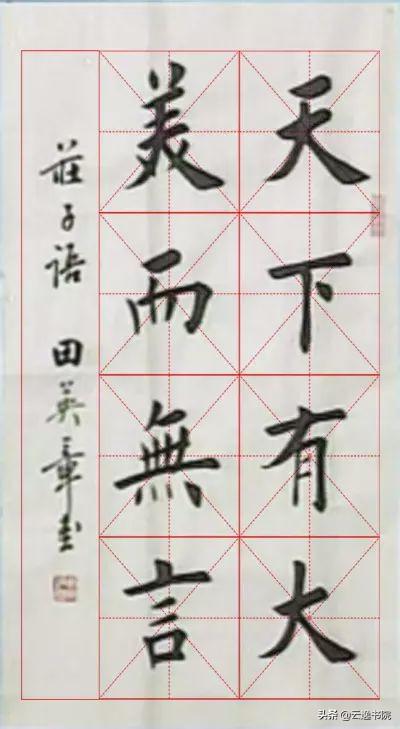 天下有大
美而無言
莊子語 田英章書
头条 @云逸书院